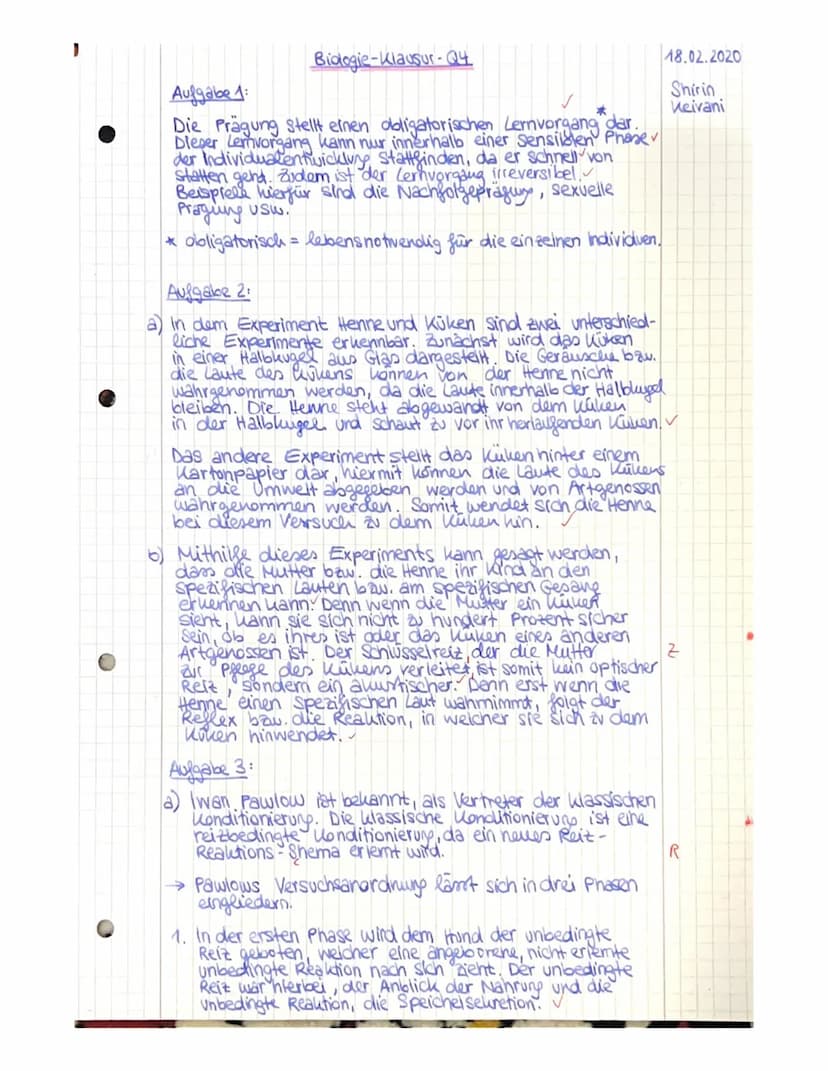 Biologie-Klausur-Q4
18.02.2020
Shirin
Keivani
Aufgabe 1:
Die Prägung stellt einen obligatorischen Lernvorgang* dar.
Dieser Lernvorgang kann nur innerhalb einer sensiblen Phase
der Individualentwicklung stattfinden, da er schnell von
statten geht. Zudem ist der Lernvorgang irreversibel.
Beispiele hierfür sind die Nachfolgeprägung, sexuelle
Prägung usw.
* obligatorisch = lebensnotwendig für die einzelnen Individuen.
Aufgabe 2:
a) In dem Experiment Henne und Küken sind zwei unterschied-
liche Experimente erkennbar. Zunächst wird das Küken
in einer Halbkugel aus Glas dargestellt. Die Geräusche bzw.
die Laute des Kükens können von der Henne nicht
wahrgenommen werden, da die Laute innerhalb der Halbkugel
bleiben. Die Henne steht abgewandt von dem Küken
in der Halbkugel und schaut zu vor ihr herlaufenden Küken.
Das andere Experiment stellt das Küken hinter einem
Kartonpapier dar, hiermit können die Laute des Kükens
an die Umwelt abgegeben werden und von Artgenossen
wahrgenommen werden. Somit wendet sich die Henne
bei diesem Versuch zu dem Küken hin.
b) Mithilfe dieses Experiments kann gesagt werden,
dass die Mutter bzw. die Henne ihr Kind an den
spezifischen Lauten bzw. am spezifischen Gesang
erkennen kann. Denn wenn die Mutter ein Küken
sieht, kann sie sich nicht zu hundert Prozent sicher
sein, ob es ihres ist oder das Küken eines anderen
Artgenossen ist. Der Schlüsselreiz, der die Mutter
Z
zur Pflege des Kükens verleitet, ist somit kein optischer
Reiz, sondern ein akustischer. Denn erst wenn die
Henne einen spezifischen Laut wahrnimmt, folgt der
Reflex bzw. die Reaktion, in welcher sie sich zu dem
Küken hinwendet.
Aufgabe 3:
a) Iwan Pawlow ist bekannt, als Vertreter der klassischen
Konditionierung. Die klassische Konditionierung ist eine
reizbedingte Konditionierung, da ein neues Reiz-
Reaktions-Shema erlernt wird.
R
→ Pawlows Versuchsanordnung lässt sich in drei Phasen
eingliedern.
1. In der ersten Phase wird dem Hund der unbedingte
Reiz geboten, welcher eine angeborene, nicht erlernte
unbedingte Reaktion nach sich zieht. Der unbedingte
Reiz war hierbei, der Anblick der Nahrung und die
unbedingte Reaktion, die Speichelsekretion.